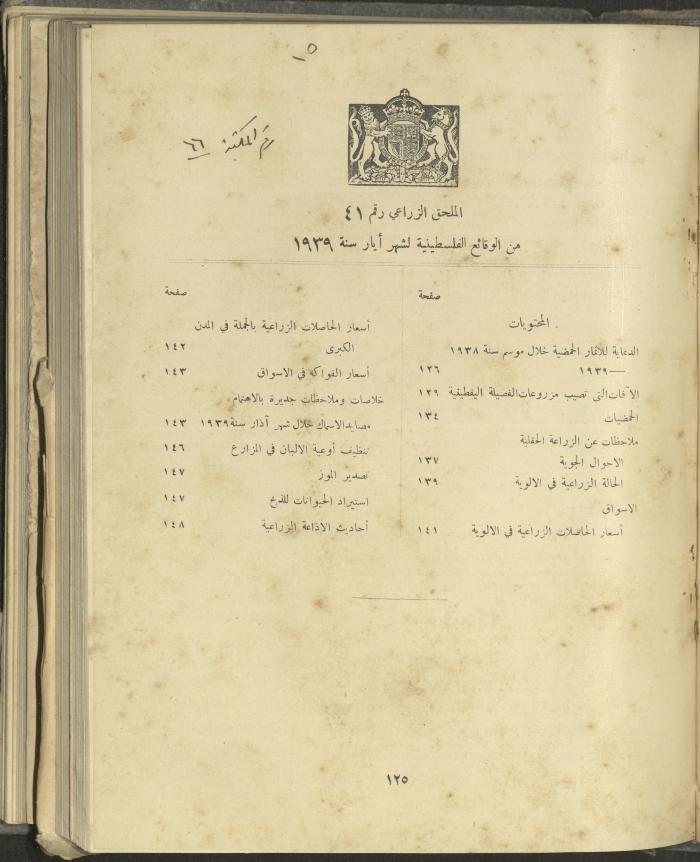 ١٥
رقم المكتبة ٦٦
الملحق الزراعي رقم ٤١
من الوقائع الفلسطينية لشهر أيار سنة ١٩٣٩
صفحة
المحتويات
الدعاية للاثمار الحمضية خلال موسم سنة ١٩٣٨
—١٩٣٩ ١٢٦
الآفات التى تصيب مزروعات الفصيلة اليقطينية ١٢٩
الحمضيات ١٣٤
ملاحظات عن الزراعة الحقلية
الاحوال الجوية ١٣٧
الحالة الزراعية في الالوية ١٣٩
الاسواق
أسعار الحاصلات الزراعية في الالوية ١٤١
صفحة
أسعار الحاصلات الزراعية بالجملة في المدن
الكبرى ١٤٢
أسعار الفواكه في الاسواق ١٤٣
خلاصات وملاحظات جديرة بالاهتمام
مصايد الاسماك خلال شهر آذار سنة ١٩٣٩ ١٤٣
تنظيف أوعية الالبان في المزارع ١٤٦
تصدير الموز ١٤٧
استيراد الحيوانات للذبح ١٤٧
أحاديث الاذاعة الزراعية ١٤٨
١٢٥